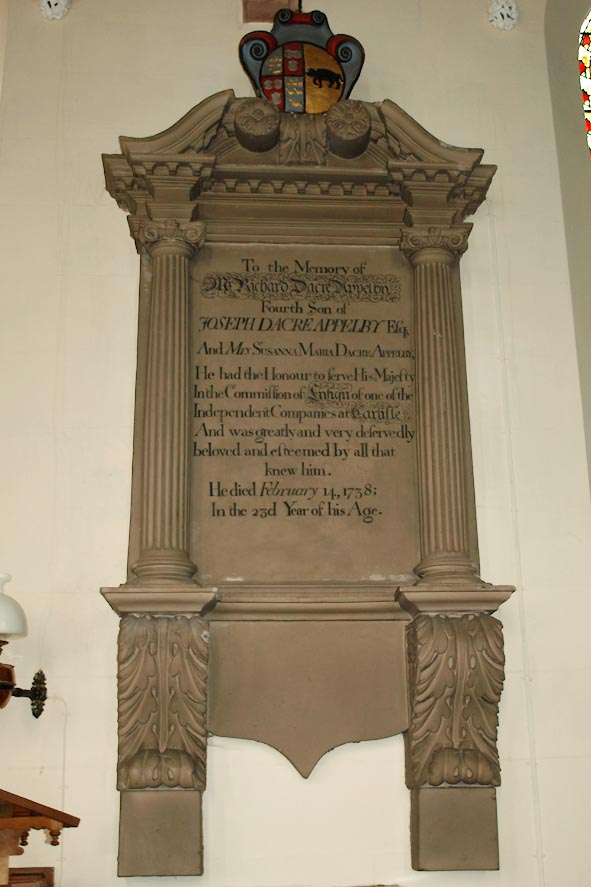 To the Memory of
Mr Richard Dacre Appelby
Fourth Son of
JOSEPH DACRE APPELBY Esq.
And Mrs SUSANNA MARIA DACRE APPELBY,
He had the Honour to ſerve His Majeſty
In the Commiſſion of Enſign of one of the
Independent Companies at Carliſle
And was greatly and very deſervedly
beloved and eſteemed by all that
knew him.
He died February 14, 1738;
In the 23d Year of his Age.